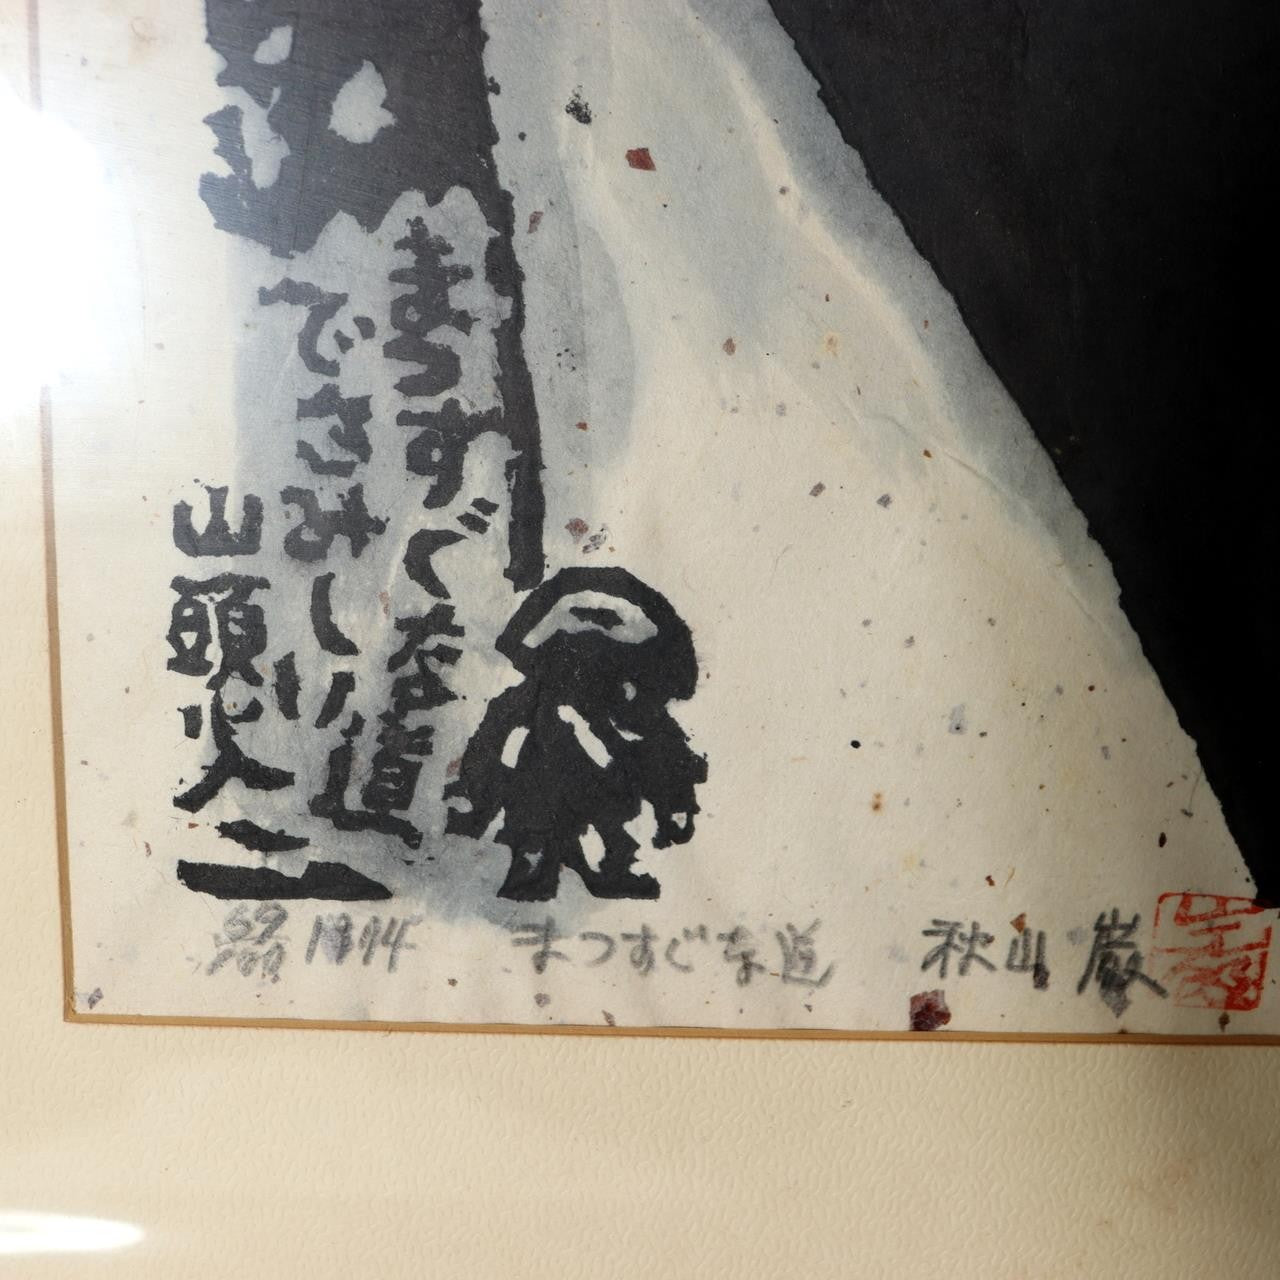 まつすぐな道
でさみしい
山頭火
1994 まつすぐな道 秋山 巌